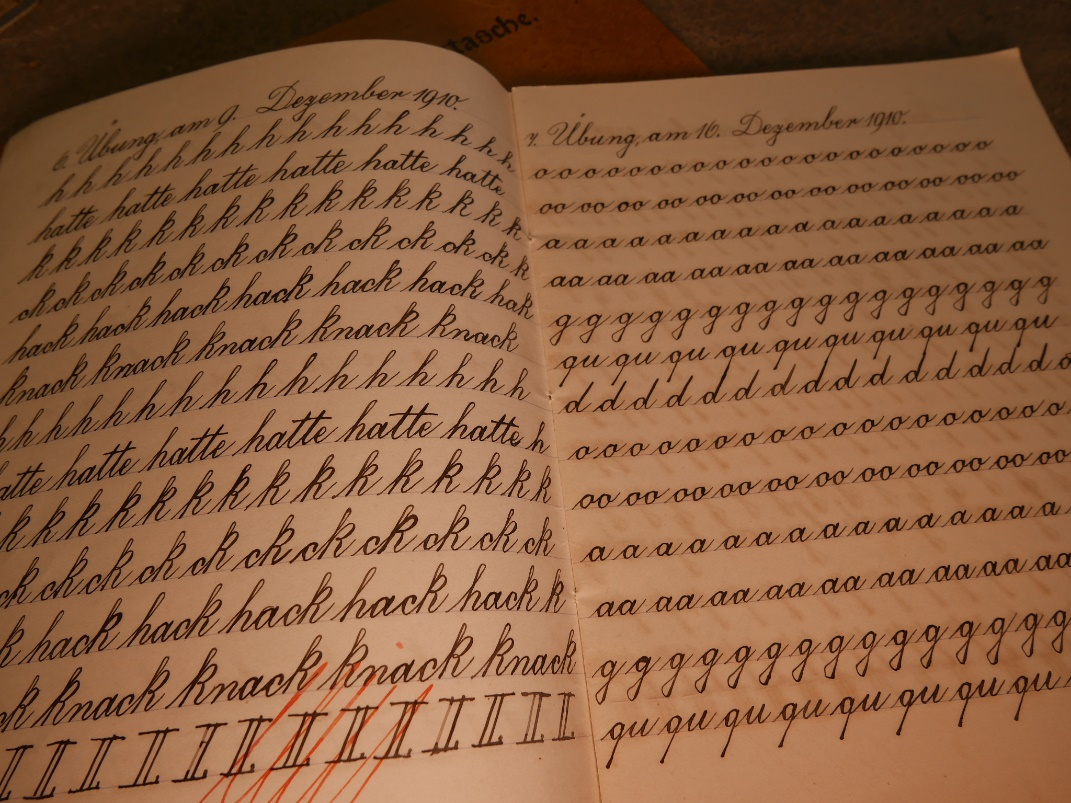 tasche.
6. Übung, am 9. Dezember 1910.
h h h h h h h h h h h h h h h h
hatte hatte hatte hatte hatte hatte
k k k k k k k k k k k k k k k k
ck ck ck ck ck ck ck ck ck ck ck ck k
hack hack hack hack hack hack hak
knack knack knack knack knack
h h h h h h h h h h h h h h h h h h
atte hatte hatte hatte hatte hatte h
k k k k k k k k k k k k k k k
ck ck ck ck ck ck ck ck ck ck ck
k hack hack hack hack hack k
ck knack knack knack knack
I I I I I I I I I I I I I I
7. Übung, am 16. Dezember 1910.
o o o o o o o o o o o o o o o o o o
oo oo oo oo oo oo oo oo oo oo oo oo oo
a a a a a a a a a a a a a a a a a a
aa aa aa aa aa aa aa aa aa aa aa
g g g g g g g g g g g g g g g g g g
qu qu qu qu qu qu qu qu qu qu
d d d d d d d d d d d d d d d
o o o o o o o o o o o o o o o o
oo oo oo oo oo oo oo oo oo oo oo
a a a a a a a a a a a a a a
aa aa aa aa aa aa aa aa aa
g g g g g g g g g g g g g g g
qu qu qu qu qu qu qu qu